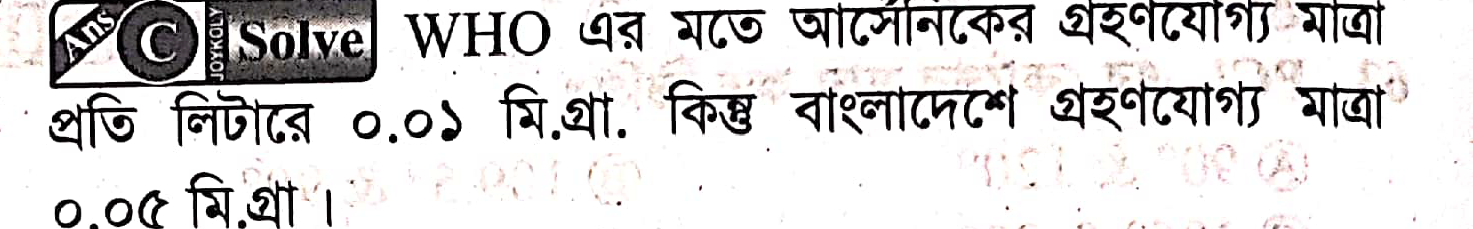 Ans C JOYKOLY Solve WHO এর মতে আর্সেনিকের গ্রহণযোগ্য মাত্রা
প্রতি লিটারে ০.০১ মি.গ্রা. কিন্তু বাংলাদেশে গ্রহণযোগ্য মাত্রা
০.০৫ মি.গ্রা।